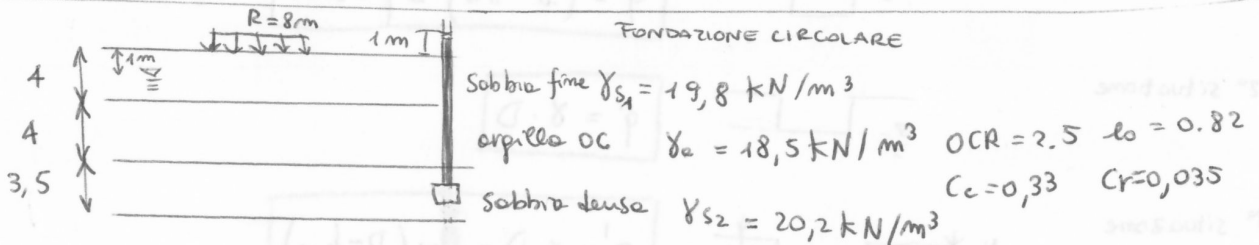 FONDAZIONE CIRCOLARE
R=8m
1m
1m
4
sabbia fine γs1 = 19,8 kN/m³
4
argilla OC γa = 18,5 kN/m³ OCR = 2.5 eo = 0.82
Cc=0,33 Cr=0,035
3,5
sabbia densa γs2 = 20,2 kN/m³